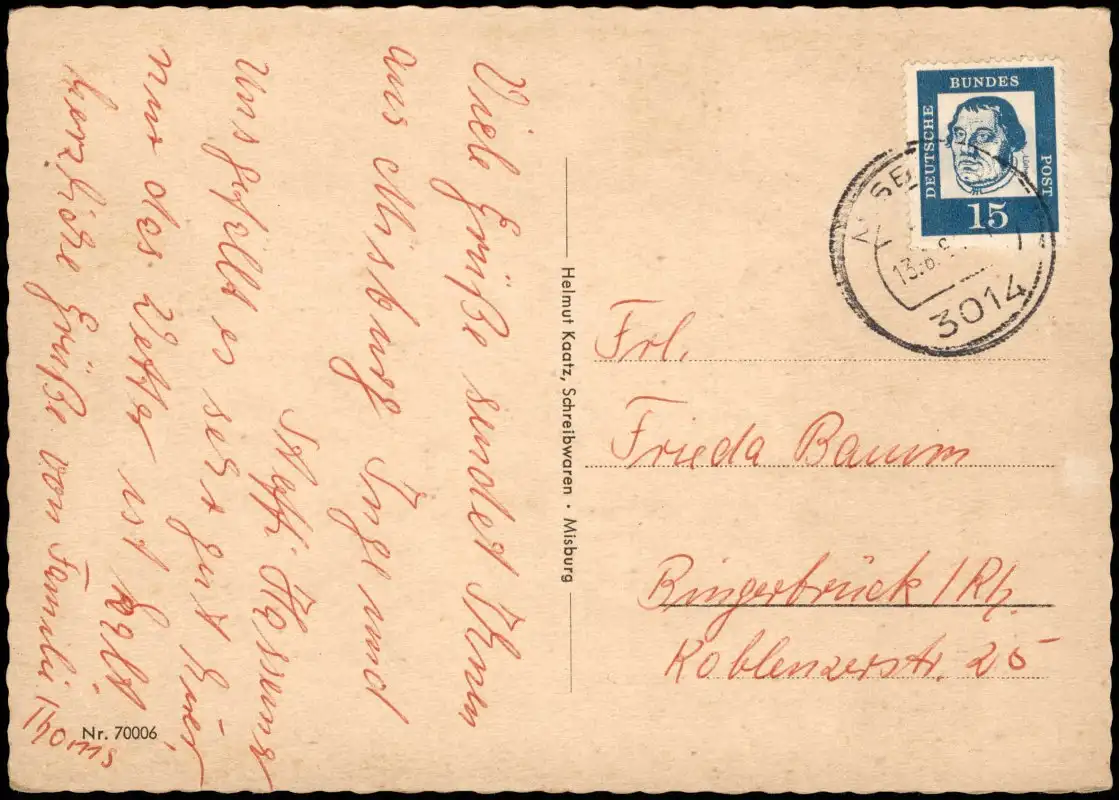 Viele Grüße sendet Ihnen
aus Misburg Inge und
Steffi
Uns gefällt es sehr gut hier
nur das Wetter ist kalt
herzliche Grüße von Familie Thoms
Nr. 70006
Helmut Kaatz, Schreibwaren • Misburg
DEUTSCHE BUNDES POST
15
13.8.
3014
Frl.
Frieda Baum
Bingerbrück / Rh.
Koblenzerstr. 25